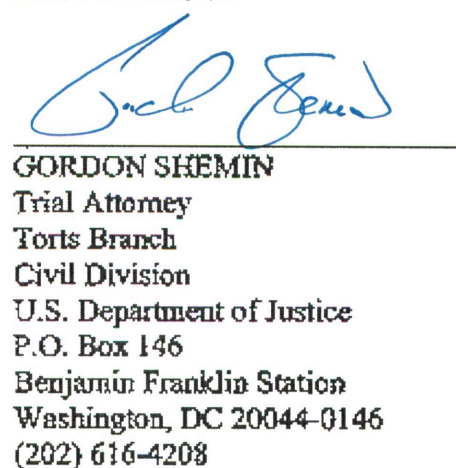 GORDON SHEMIN
Trial Attorney
Torts Branch
Civil Division
U.S. Department of Justice
P.O. Box 146
Benjamin Franklin Station
Washington, DC 20044-0146
(202) 616-4208